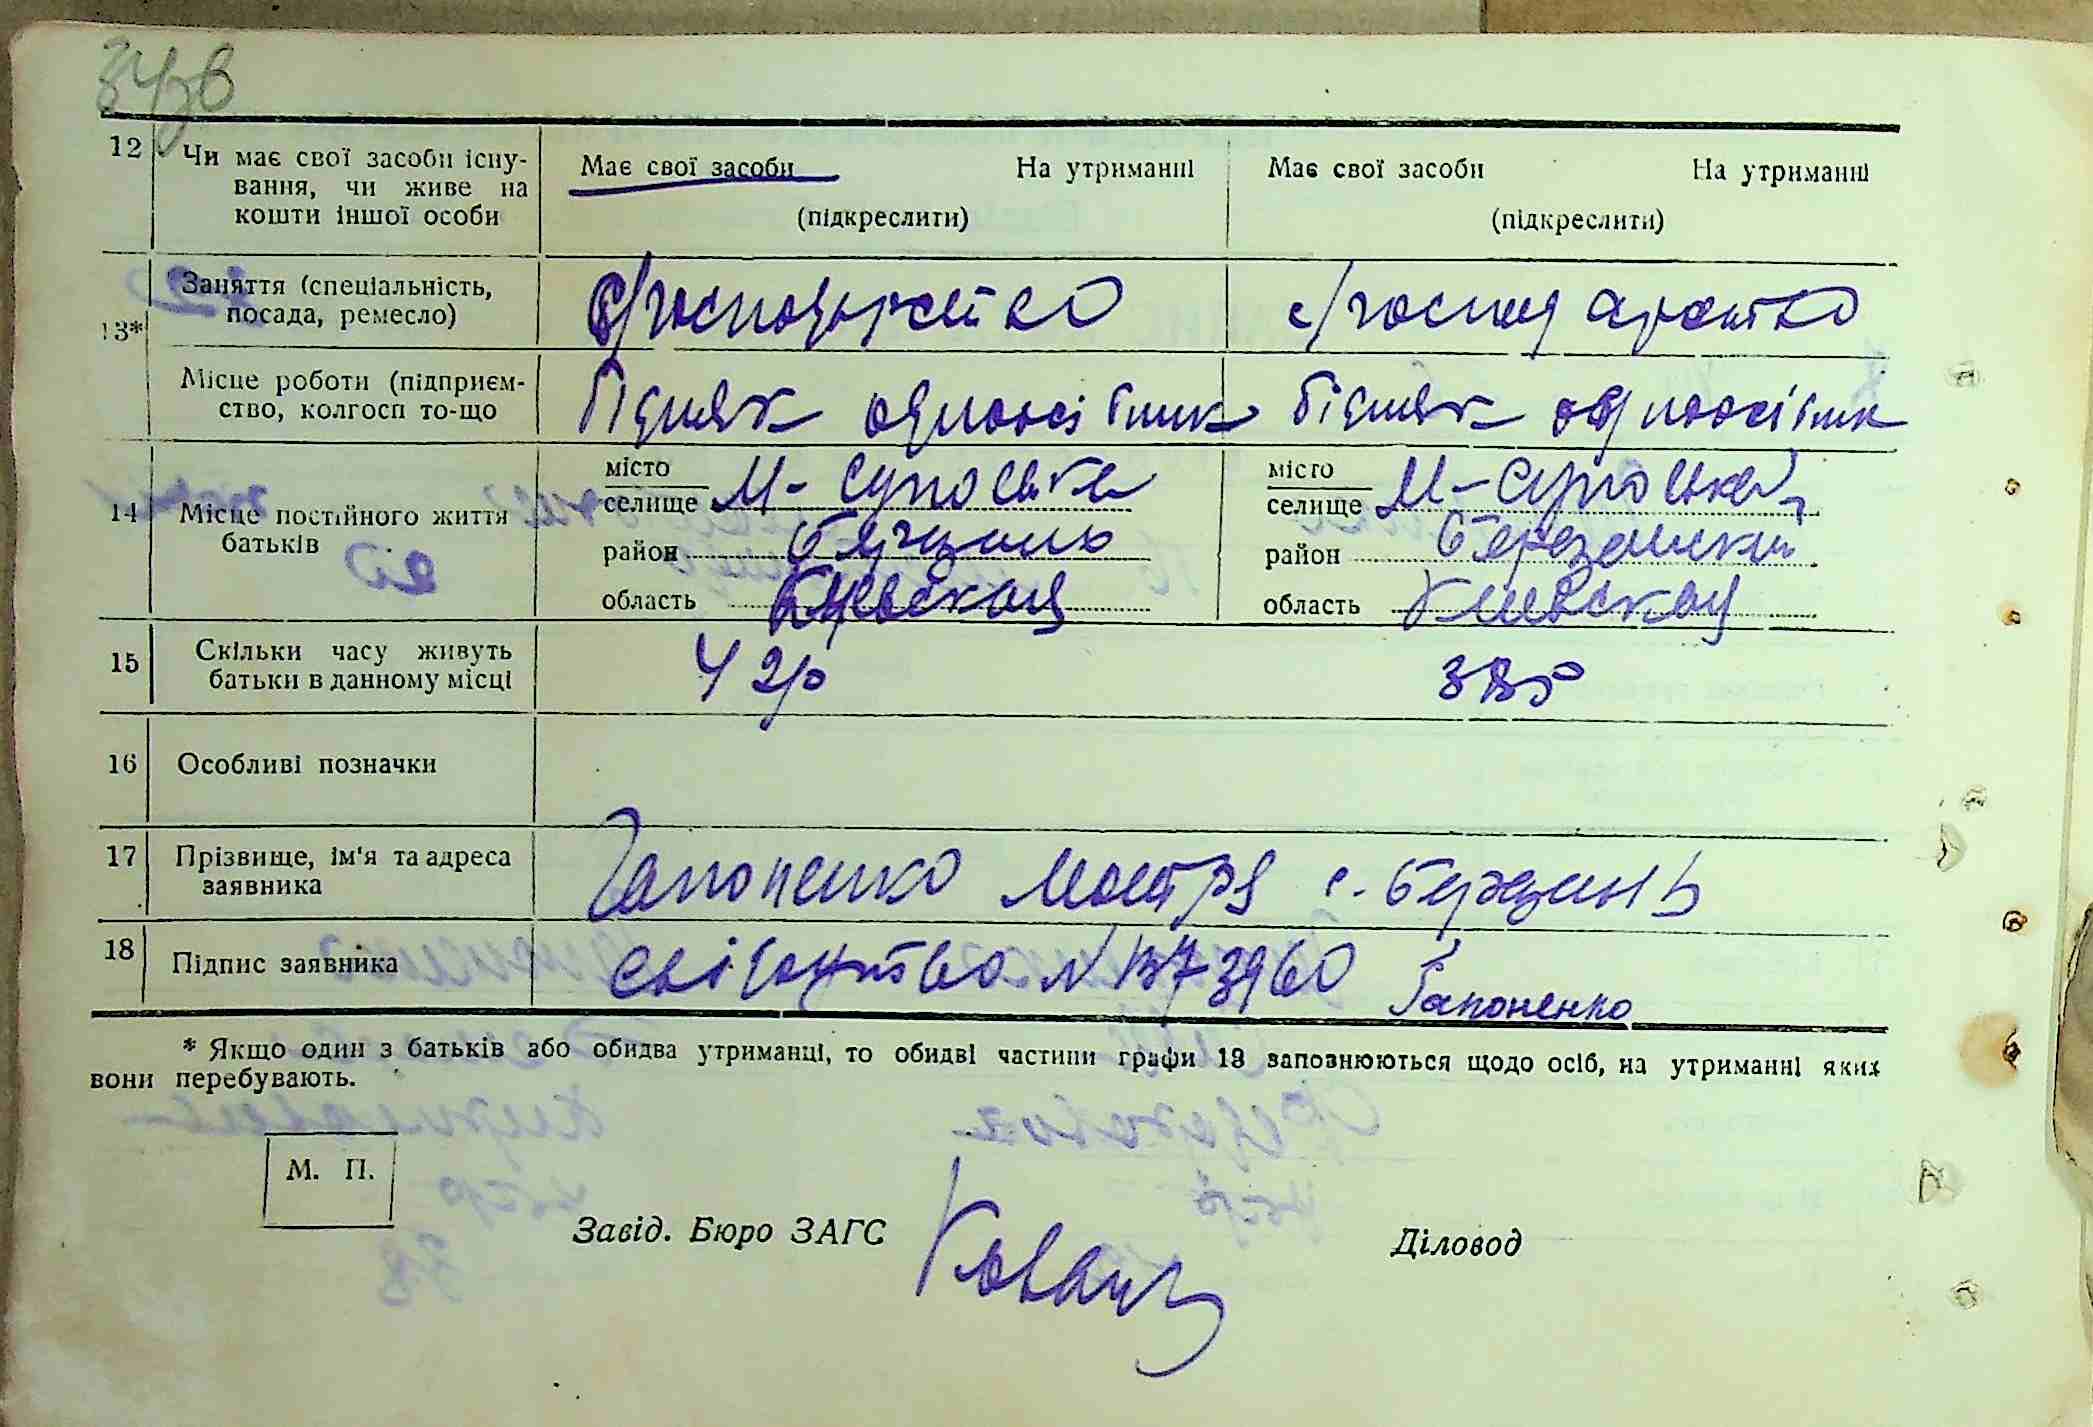 34зв
12 Чи має свої засоби існу-
вання, чи живе на
кошти іншої особи
Має свої засоби На утриманні
(підкреслити)
Має свої засоби На утриманні
(підкреслити)
13*
Заняття (спеціальність,
посада, ремесло)
с/господарство
с/господарство
Місце роботи (підприєм-
ство, колгосп то-що
Бідняк одноосібник
бідняк одноосібник
14 Місце постійного життя
батьків
місто
селище М-Суповка
район Березань
область Киевская
місто
селище М-Суповка
район Березанский
область Киевская
15 Скільки часу живуть
батьки в данному місці
4 г/р
16 Особливі позначки
17 Прізвище, ім'я та адреса
заявника
Гапоненко с. Березань
18 Підпис заявника
свідоцтво N Гапоненко
* Якщо один з батьків або обидва утриманці, то обидві частини графи 13 заповнюються щодо осіб, на утриманні яких
вони перебувають.
М. П.
Завід. Бюро ЗАГС
Діловод